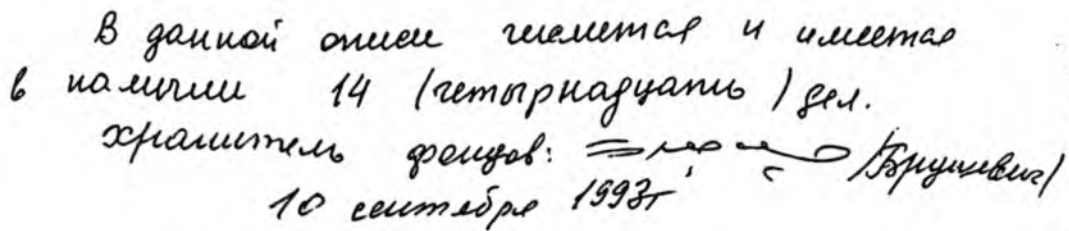 В данной описи числится и имеется
в наличии 14 (четырнадцать) дел.
хранитель фондов:
10 сентября 1993г